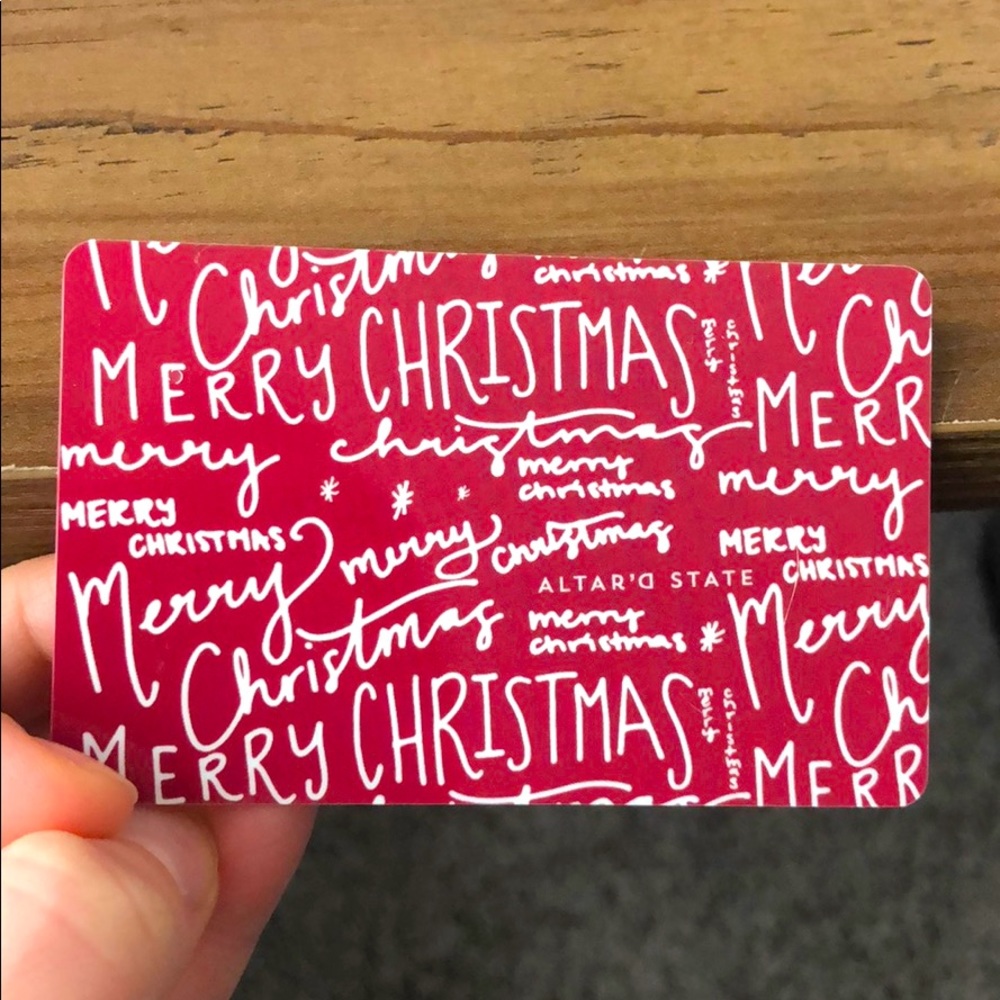 Christmas
christmas *
MERRY CHRISTMAS
merry christmas
merry
christmas
MERRY
CHRISTMAS
merry christmas
Merry
Christmas
ALTAR'D STATE
merry
christmas *
MERRY CHRISTMAS
MERR
merry
MERRY
CHRISTMAS
Merry
Ch
MERR